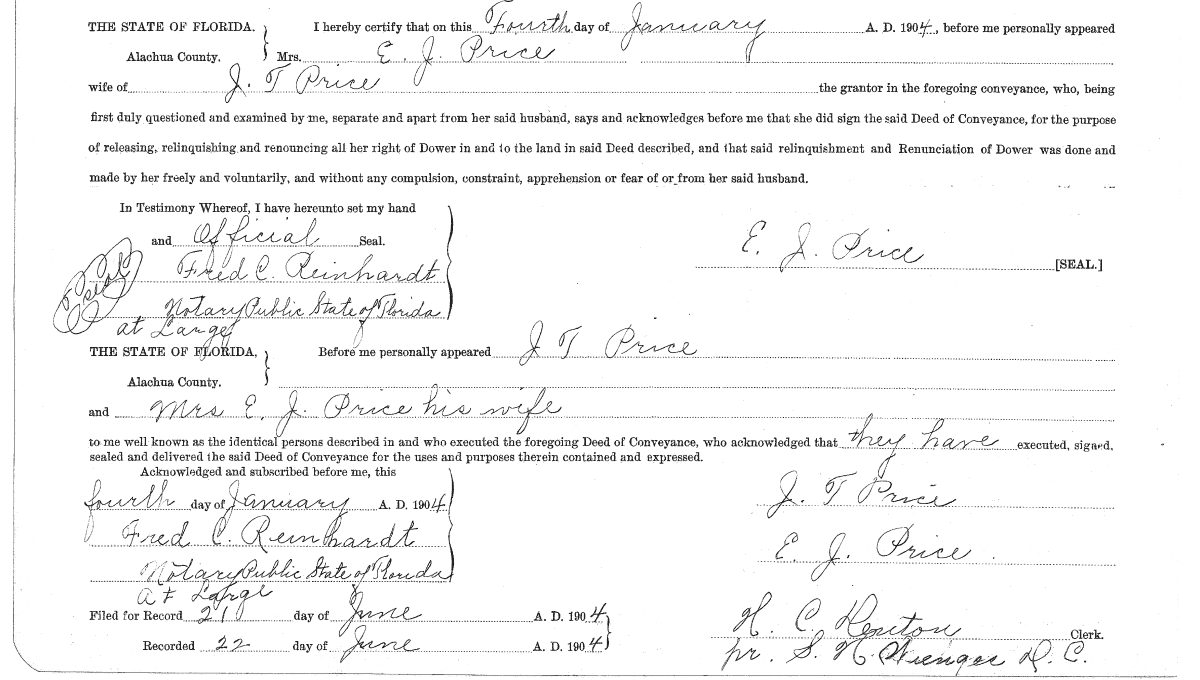 THE STATE OF FLORIDA. I hereby certify that on this Fourth day of January A. D. 1904, before me personally appeared
Alachua County. Mrs. E. J. Price
wife of J. T Price the grantor in the foregoing conveyance, who, being
first duly questioned and examined by me, separate and apart from her said husband, says and acknowledges before me that she did sign the said Deed of Conveyance, for the purpose
of releasing, relinquishing and renouncing all her right of Dower in and to the land in said Deed described, and that said relinquishment and Renunciation of Dower was done and
made by her freely and voluntarily, and without any compulsion, constraint, apprehension or fear of or from her said husband.
In Testimony Whereof, I have hereunto set my hand
and Official Seal. E. J. Price
Seal Fred C. Reinhardt [SEAL.]
Notary Public State of Florida
at Large
THE STATE OF FLORIDA, Before me personally appeared J T Price
Alachua County.
and Mrs E. J. Price his wife
to me well known as the identical persons described in and who executed the foregoing Deed of Conveyance, who acknowledged that they have executed, signed,
sealed and delivered the said Deed of Conveyance for the uses and purposes therein contained and expressed.
Acknowledged and subscribed before me, this
fourth day of January A. D. 1904 J. T Price
Fred C. Reinhardt E. J. Price
Notary Public State of Florida
at Large
Filed for Record 21 day of June A. D. 1904 H. C. Clerk.
Recorded 22 day of June A. D. 1904 pr. S. H. Wienges D. C.